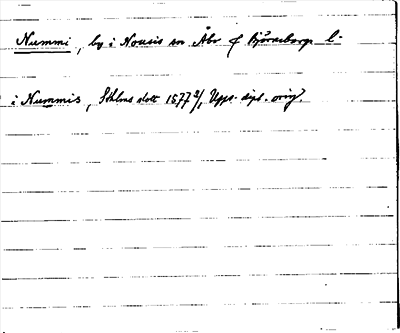 Nummi, by i Nousis sn. Åbo o. Björneborgs l.
i Nummis, Sthlms slott 1577 2/1, Upps. dipl. orig.